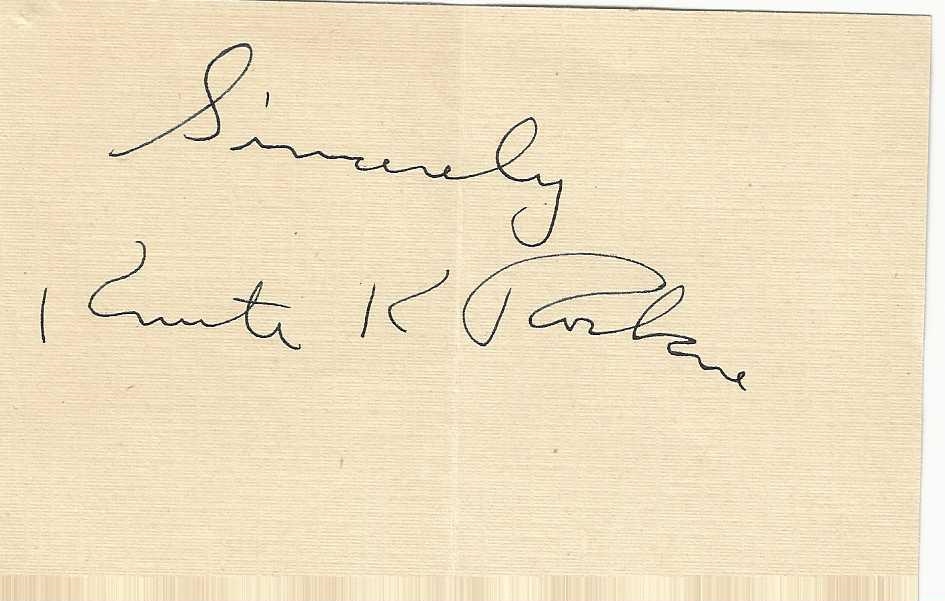 Sincerely
Knute K Rockne